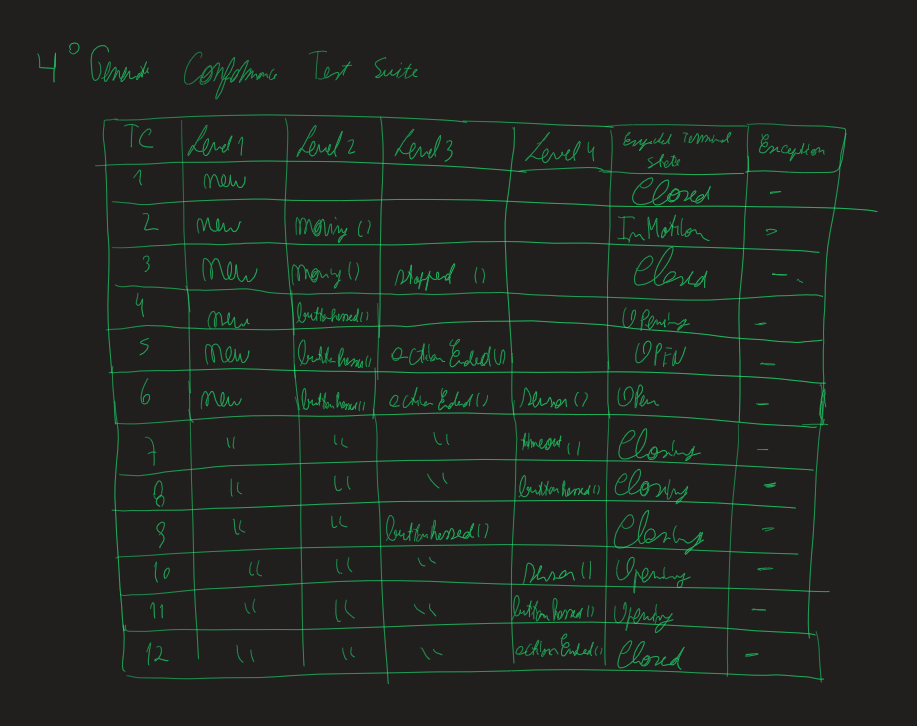 4° Generate Conformance Test Suite
TC Level 1 Level 2 Level 3 Level 4 Expected Terminal State Exception
1 new Closed -
2 new moving () InMotion -
3 new moving () stopped () Closed -
4 new buttonPressed() Opening -
5 new buttonPressed() actionEnded() OPEN -
6 new buttonPressed() actionEnded() sensor () Open -
7 " " " timeout () Closing -
8 " " " buttonPressed() Closing -
9 " " buttonPressed() Closing -
10 " " " sensor () Opening -
11 " " " buttonPressed() Opening -
12 " " " actionEnded() Closed -